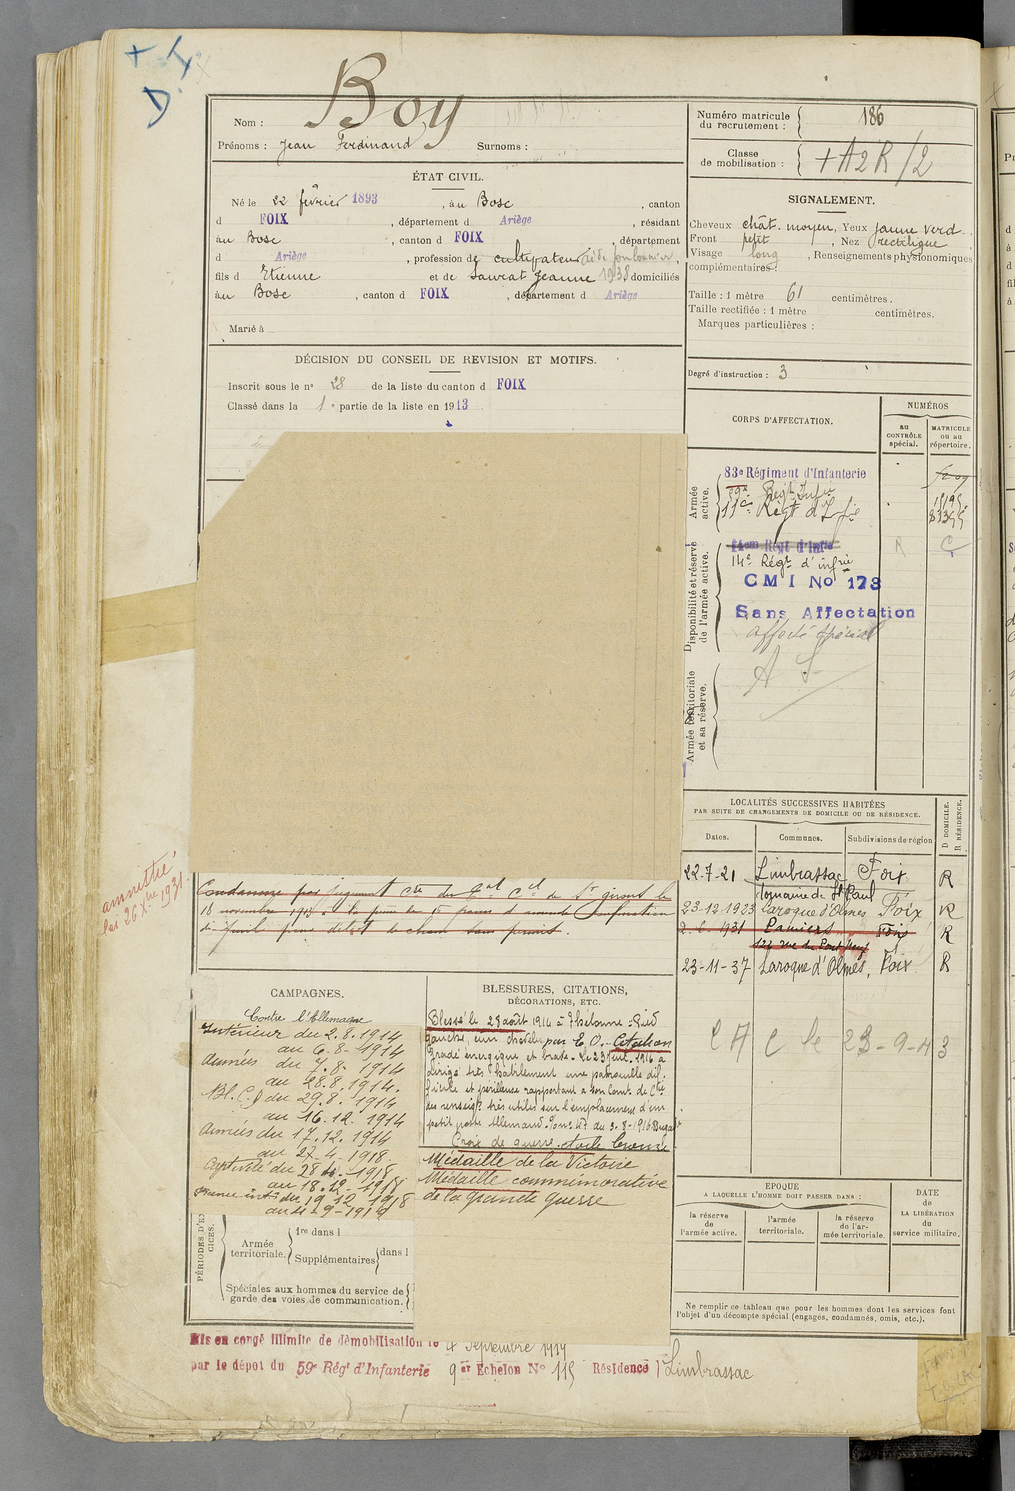 Boy
Nom :
Prénoms : Jean Ferdinand Surnoms :
ÉTAT CIVIL.
Né le 22 février 1893, au Bosc, canton
d FOIX, département d Ariège, résidant
au Bosc, canton d FOIX, département
d Ariège, profession de cultivateur
fils d Etienne et de Saurat Jeanne 1938 domiciliés
au Bosc, canton d FOIX, département d Ariège
Marié à
DÉCISION DU CONSEIL DE REVISION ET MOTIFS.
Inscrit sous le n° 28 de la liste du canton d FOIX
Classé dans la 1e partie de la liste en 1913
Numéro matricule du recrutement : 186
Classe de mobilisation : +A2R/2
SIGNALEMENT.
Cheveux chât. moyen, Yeux jaune verd.
Front petit, Nez rectiligne
Visage long, Renseignements physionomiques
complémentaires :
Taille : 1 mètre 61 centimètres.
Taille rectifiée : 1 mètre centimètres.
Marques particulières :
Degré d'instruction : 3
CORPS D'AFFECTATION.
NUMÉROS
au CONTRÔLE spécial.
MATRICULE ou au répertoire.
Armée active.
83e Régiment d'Infanterie
59e Régt Infie
11e Régt d'Infie
Disponibilité et réserve de l'armée active.
14em Régt d'Infie
14e Régt d'infrie
CMI No 173
Sans Affectation
affecté spécial
A S
Armée territoriale et sa réserve.
LOCALITÉS SUCCESSIVES HABITÉES
PAR SUITE DE CHANGEMENTS DE DOMICILE OU DE RÉSIDENCE.
D DOMICILE.
R RÉSIDENCE.
Dates. Communes. Subdivisions de région
22-7-21 Limbrassac Foix R
Domaine de St Paul
23-12-1923 Laroque d'Olmes Foix R
1931 Pamiers Foix R
rue du Pont Neuf
23-11-37 Laroque d'Olmes, Foix R
le 23-9-43
amnistié
loi 26 Xbre 1931
Condamné par jugement
18 novembre 1913 à la peine de 15 francs d'amende
délit de chasse sans permis.
CAMPAGNES.
Contre l'Allemagne
Intérieur du 2.8.1914
au 6-8-1914
Armées du 7.8.1914
au 28.8.1914.
Bl. C. du 29.8.1914
au 16.12.1914
Armées du 17.12.1914
au 27-4-1918.
Captivité du 28-4-1918
au 18.12.1918
du 19.12.1918
au 4-9-1919
BLESSURES, CITATIONS,
DÉCORATIONS, ETC.
Blessé le 28 août 1914 à Thelonne : Pied
gauche, par E.O. Citation
Gradé énergique et brave. Le 23 1916 a
dirigé très habilement une patrouille dif-
ficile et périlleuse rapportant à son Comt de Cie
des renseigts très utiles sur l'emplacement d'un
petit poste Allemand.
Croix de guerre étoile bronze
Médaille de la Victoire
Médaille commémorative
de la grande guerre
PÉRIODES D'EXERCICES.
Armée territoriale. 1re dans l
Supplémentaires dans l
Spéciales aux hommes du service de
garde des voies de communication.
EPOQUE
A LAQUELLE L'HOMME DOIT PASSER DANS :
la réserve de l'armée active.
l'armée territoriale.
la réserve de l'armée territoriale.
DATE de LA LIBÉRATION du service militaire.
Ne remplir ce tableau que pour les hommes dont les services font
l'objet d'un décompte spécial (engagés, condamnés, omis, etc.).
Mis en congé illimité de démobilisation le 4 Septembre 1919
par le dépot du 59e Régt d'Infanterie 9er Echelon No 115 Résidence Limbrassac